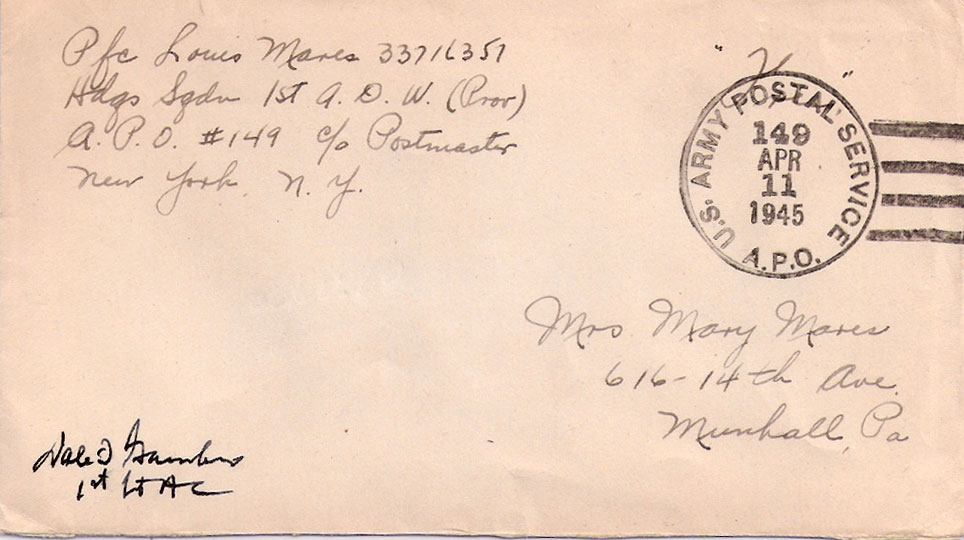 Pfc Louis Mares 33716357
Hdqs Sqdn 1st A. D. W. (Prov)
A. P. O. #149 c/o Postmaster
New York, N. Y.
U.S. ARMY POSTAL SERVICE
149
APR
11
1945
A.P.O.
Mrs Mary Mares
616-14th Ave.
Munhall, Pa
Dale D
1st Lt AC